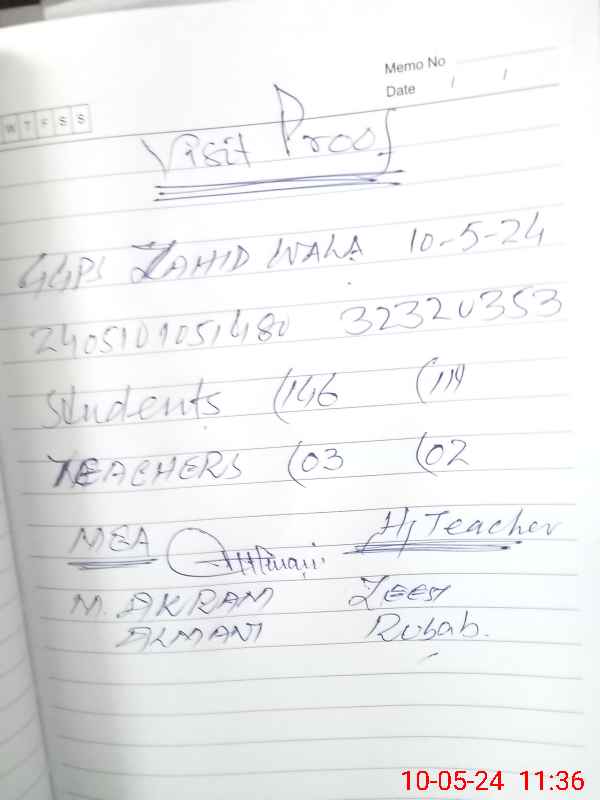 Memo No
Date / /
W T F S S
Visit Proof
GGPS ZAHID WALA 10-5-24
2405101051480 32320353
Students (146 (119
TEACHERS (03 (02
MEA H/Teacher
M. AKRAM ZEEST
ALMANI Rubab.
10-05-24 11:36